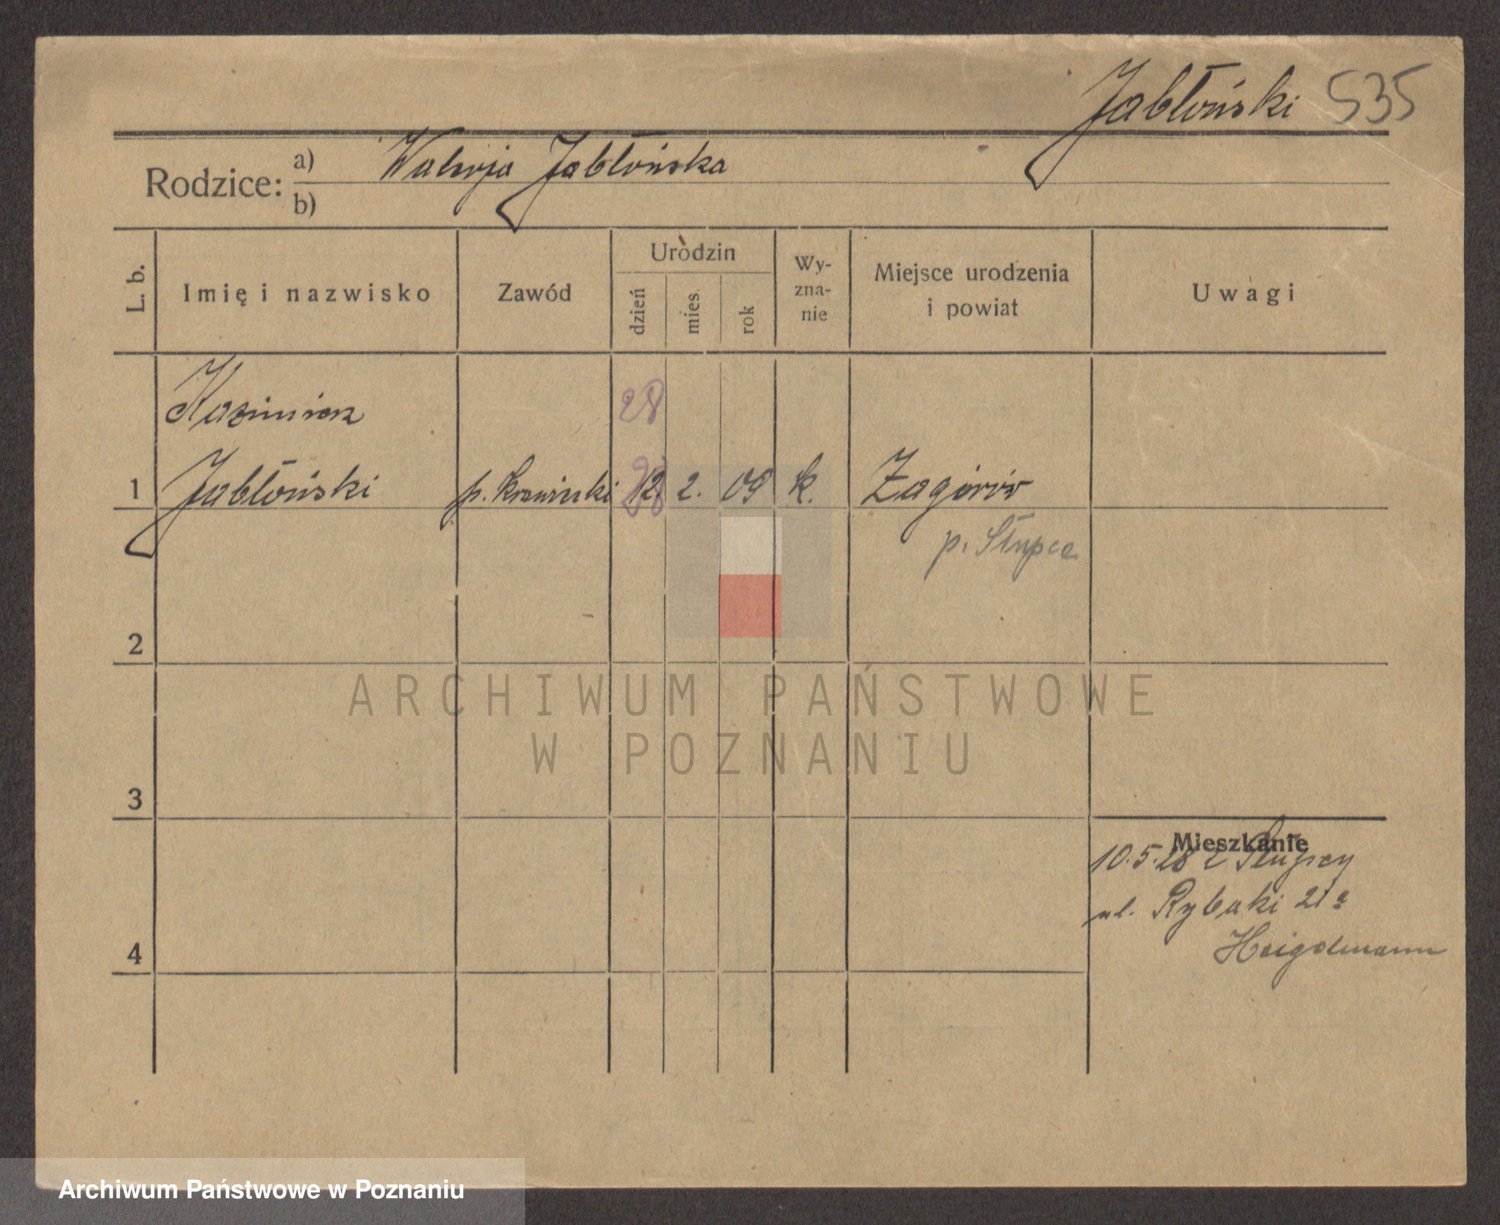 Jabłoński 535
Rodzice: a) Walerja Jabłońska
b)
L. b.
Imię i nazwisko
Zawód
Urodzin
dzień
mies.
rok
Wy-
zna-
nie
Miejsce urodzenia
i powiat
Uwagi
Kazimierz
28
1 Jabłoński p. krawiecki 12. 2. 09 k. Zagórów
28
p. Słupca
2
ARCHIWUM PAŃSTWOWE
W POZNANIU
3
Mieszkanie
10.5.28 z Słupcy
ul. Rybaki 21a
4
Archiwum Państwowe w Poznaniu